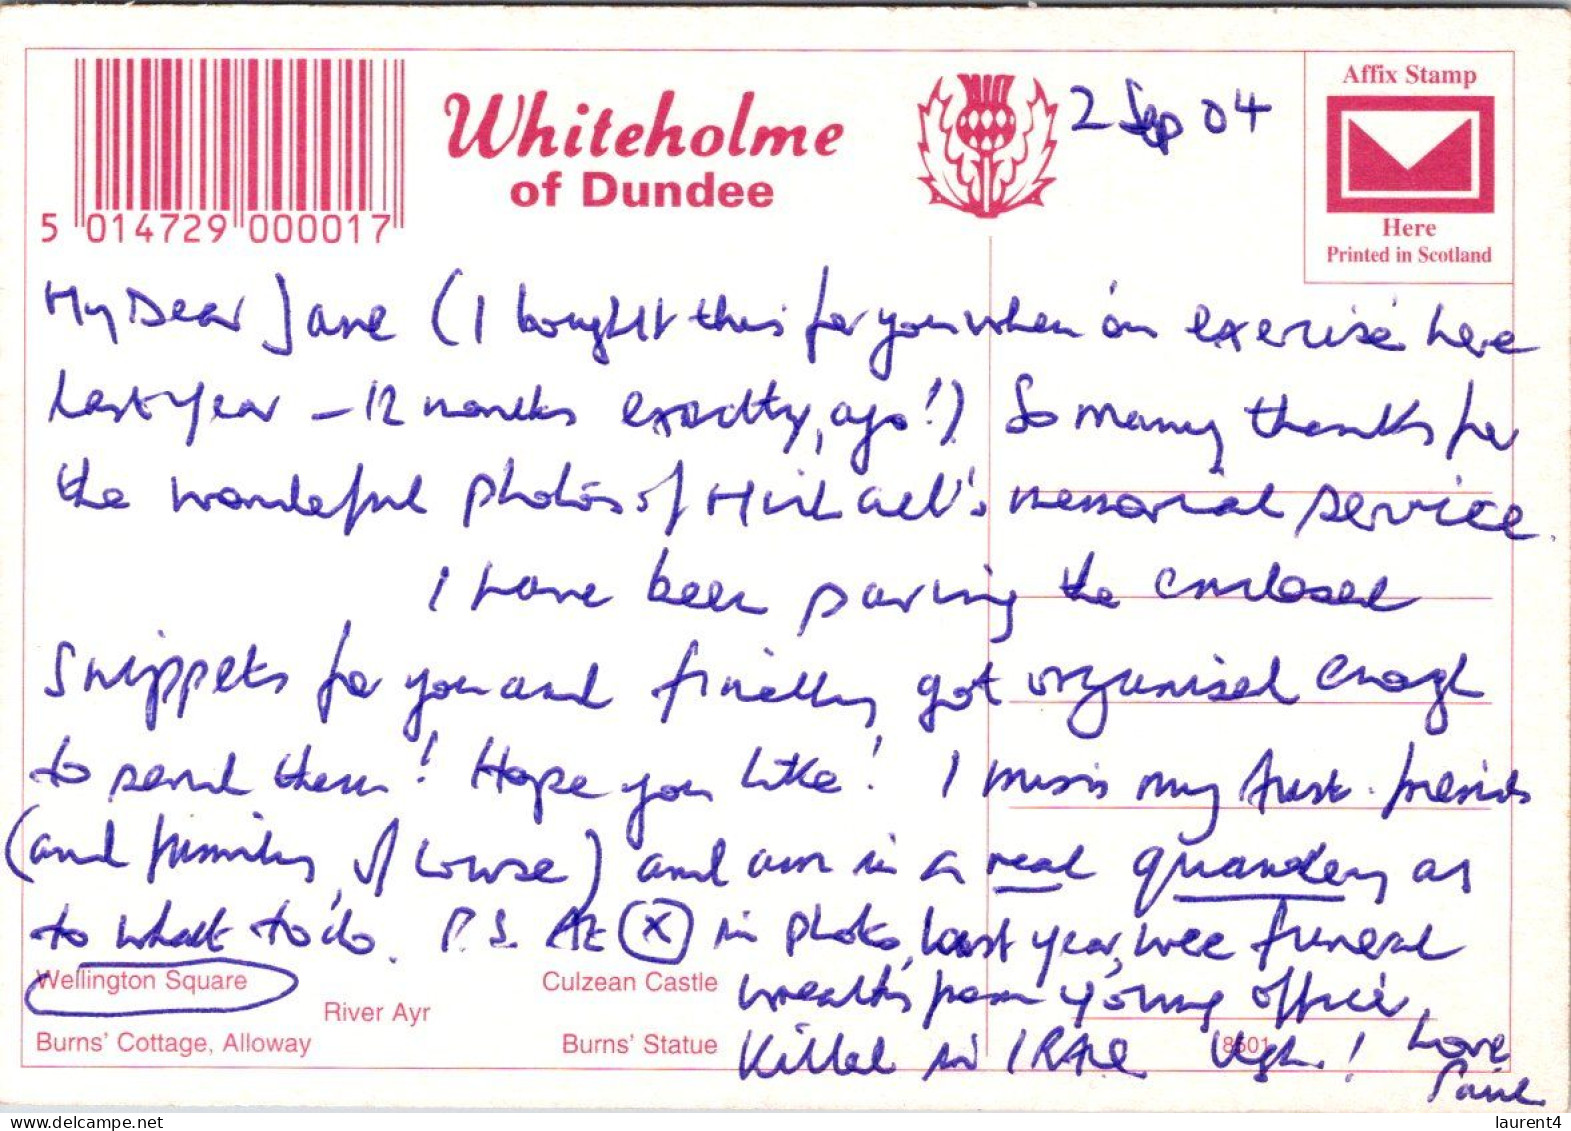 Affix Stamp
Whiteholme
of Dundee
2 Sep 04
Here
Printed in Scotland
5 014729 000017
My Dear Jane (I bought this for you when on exercise here
last year - 12 months exactly, ago!) So many thanks for
the wonderful photos of Michael's memorial service.
I have been saving the enclosed
snippets for you and finally, got organised enough
to send them! Hope you like! I miss my trust. friends
(and family, of course) and am in a real quandary as
to what to do. P.S. At (X) in photo, last year, were funeral
wreaths from young officer,
killed in IRAQ Ugh! Love
Paul
Wellington Square
Culzean Castle
River Ayr
Burns' Cottage, Alloway
Burns' Statue
8501
laurent4